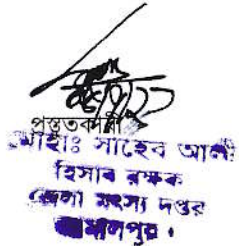 প্রস্তুতকারী
মোহাঃ সাহেব আলী
হিসাব রক্ষক
জেলা মৎস্য দপ্তর
জামালপুর।